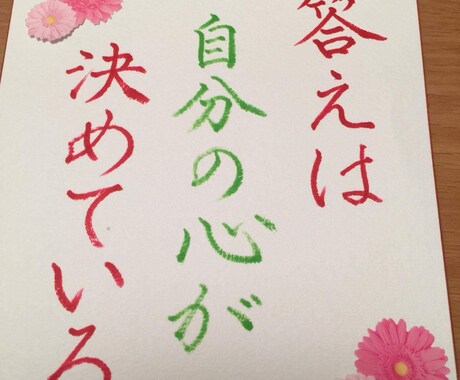 答えは
自分の心が
決めている